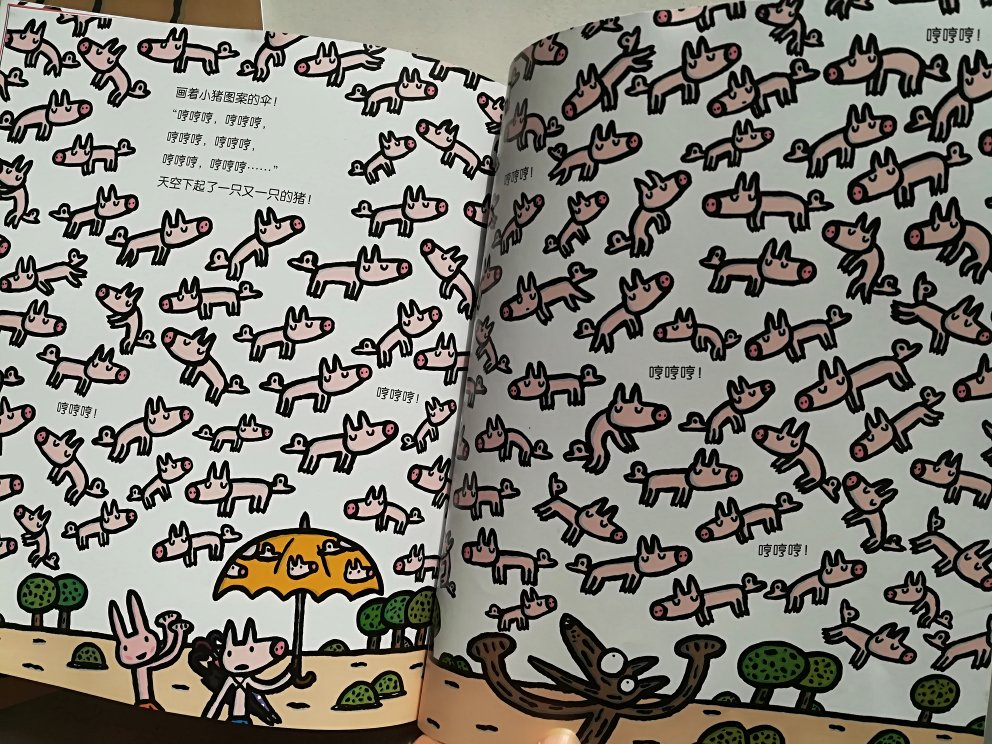 画着小猪图案的伞！
“哼哼哼，哼哼哼，
哼哼哼，哼哼哼，
哼哼哼，哼哼哼……”
天空下起了一只又一只的猪！
哼哼哼！
哼哼哼！
哼哼哼！
哼哼哼！
哼哼哼！
哼哼哼！